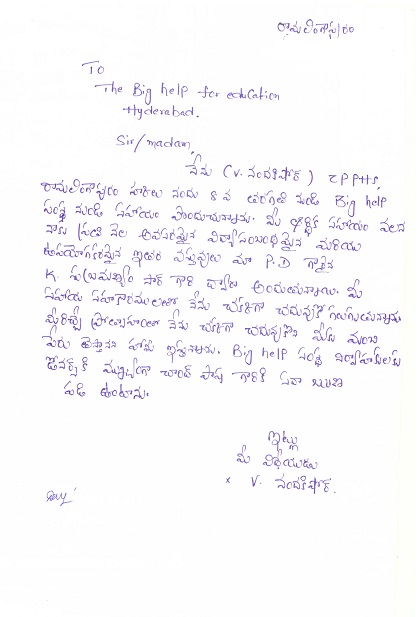 రామలింగాపురం
To
The Big help for education
Hyderabad.
Sir/madam,
నేను (V. నందకిషోర్) ZPPHS,
రామలింగాపురం పాఠశాల నందు 8 వ తరగతి నుండి Big help
సంస్థ నుండి సహాయం పొందుచున్నాను. మీ ఆర్థిక సహాయం వలన
నాకు ప్రతి నెల అవసరమైన విద్యాసంబంధమైన మరియు
ఉపయోగకరమైన ఇతర వస్తువులు మా P.D గారైన
K. సుబ్రమణ్యం సార్ గారి ద్వారా అందుతున్నాయి. మీ
సహాయ సహకారములతో నేను చక్కగా చదువుకోగలుగుతున్నాను.
మీరిచ్చే ప్రోత్సాహంతో నేను చక్కగా చదువుకొని మీకు మంచి
పేరు తెస్తానని హామీ ఇస్తున్నాను. Big help సంస్థ నిర్వాహకులకు
డోనర్స్ కి ముఖ్యంగా చాంద్ పాషా గారికి సదా ఋణ
పడి ఉంటాను.
ఇట్లు
మీ విధేయుడు
x V. నందకిషోర్.